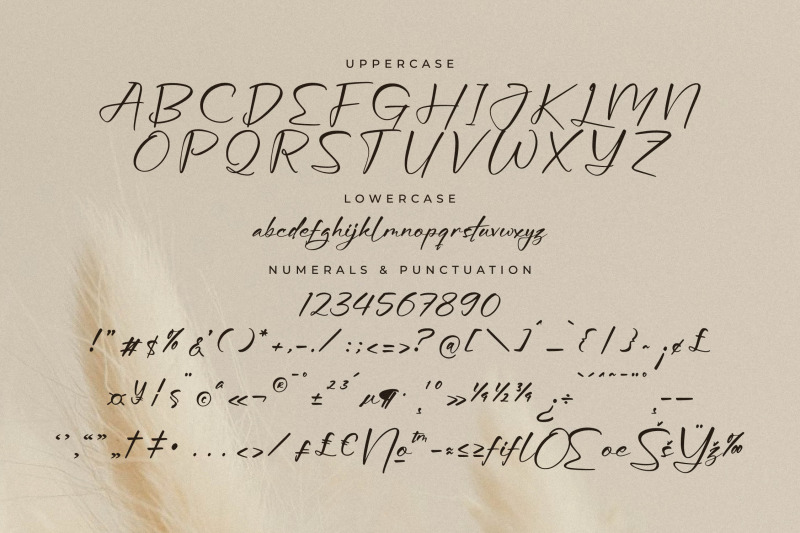 UPPERCASE
ABCDEFGHIJKLMN
OPQRSTUVWXYZ
LOWERCASE
abcdefghijklmnopqrstuvwxyz
NUMERALS & PUNCTUATION
1234567890
!"#$%&'()*+,-./:;<=>?@[\]^_`{|}~¡¢£
¤¥¦§¨©ª«¬®¯°±²³´µ¶·¸¹º»¼½¾¿÷
‘’‚“”„†‡•...‹›⁄ƒ₤€№™−≈≤≥fiflŒœŠšŸž‰